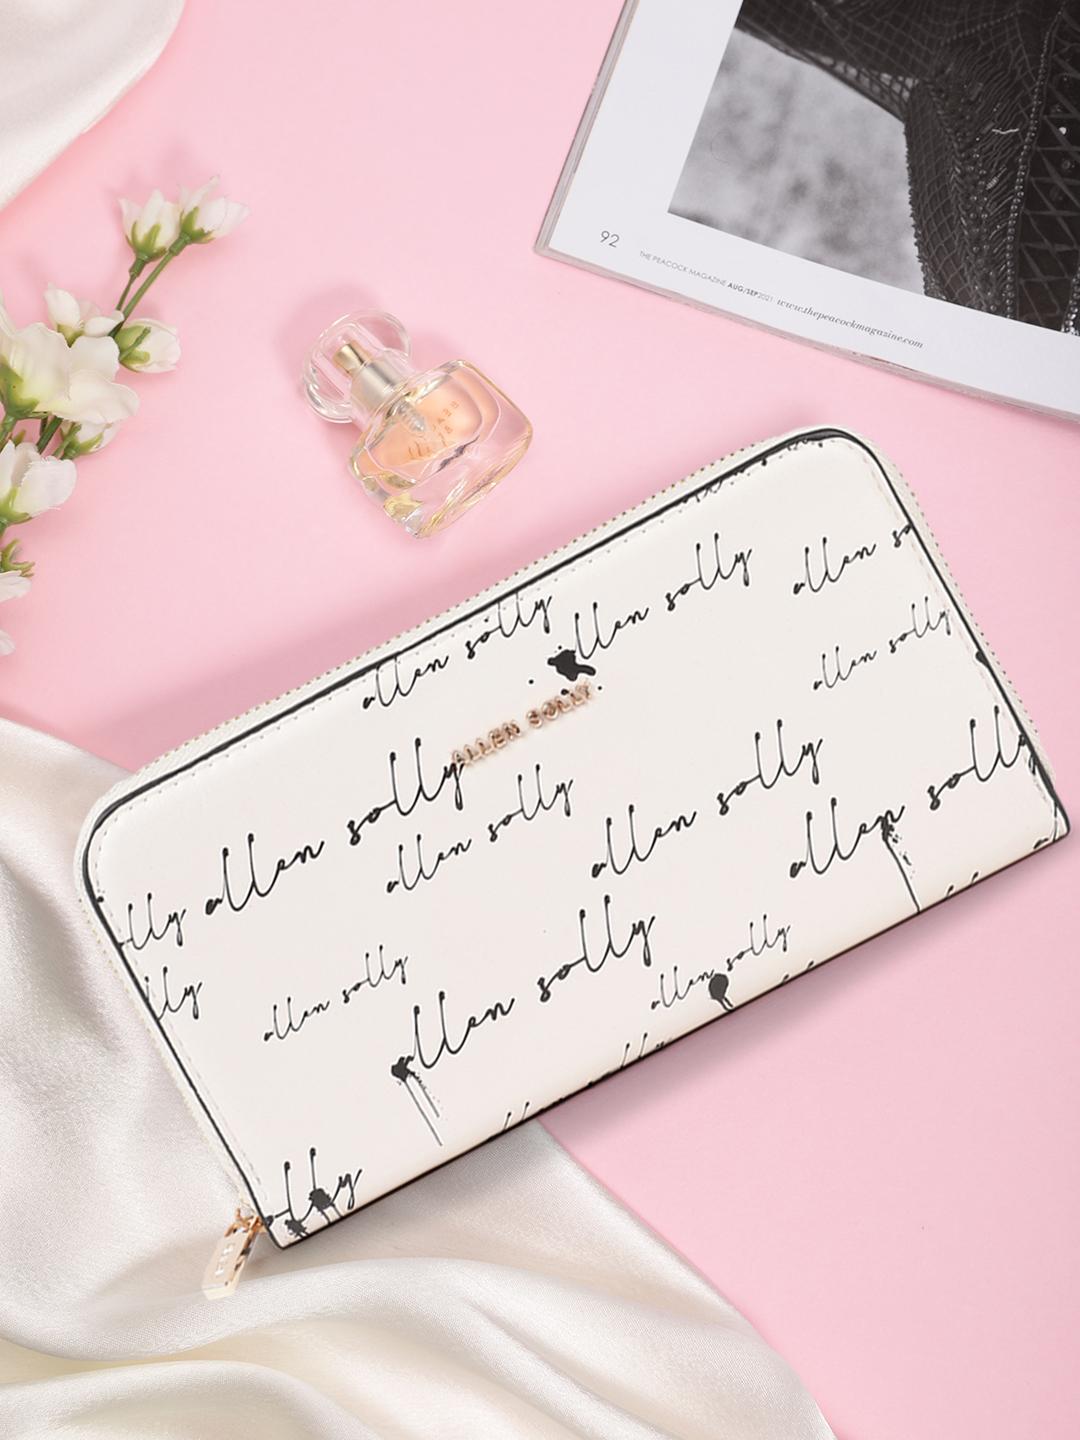 92
THE PEACOCK MAGAZINE AUG/SEP2021 www.thepeacockmagazine.com
allen so
allen solly
allen solly
allen solly
ALLEN SOLLY
allen solly
allen solly
allen solly
allen solly
allen solly
lly
lly
allen solly
allen solly
allen solly
lly